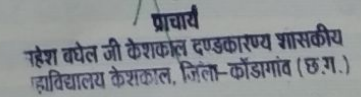 प्राचार्य
महेश बघेल जी केशकाल दण्डकारण्य शासकीय
महाविद्यालय केशकाल, जिला-कोंडागांव (छ.ग.)